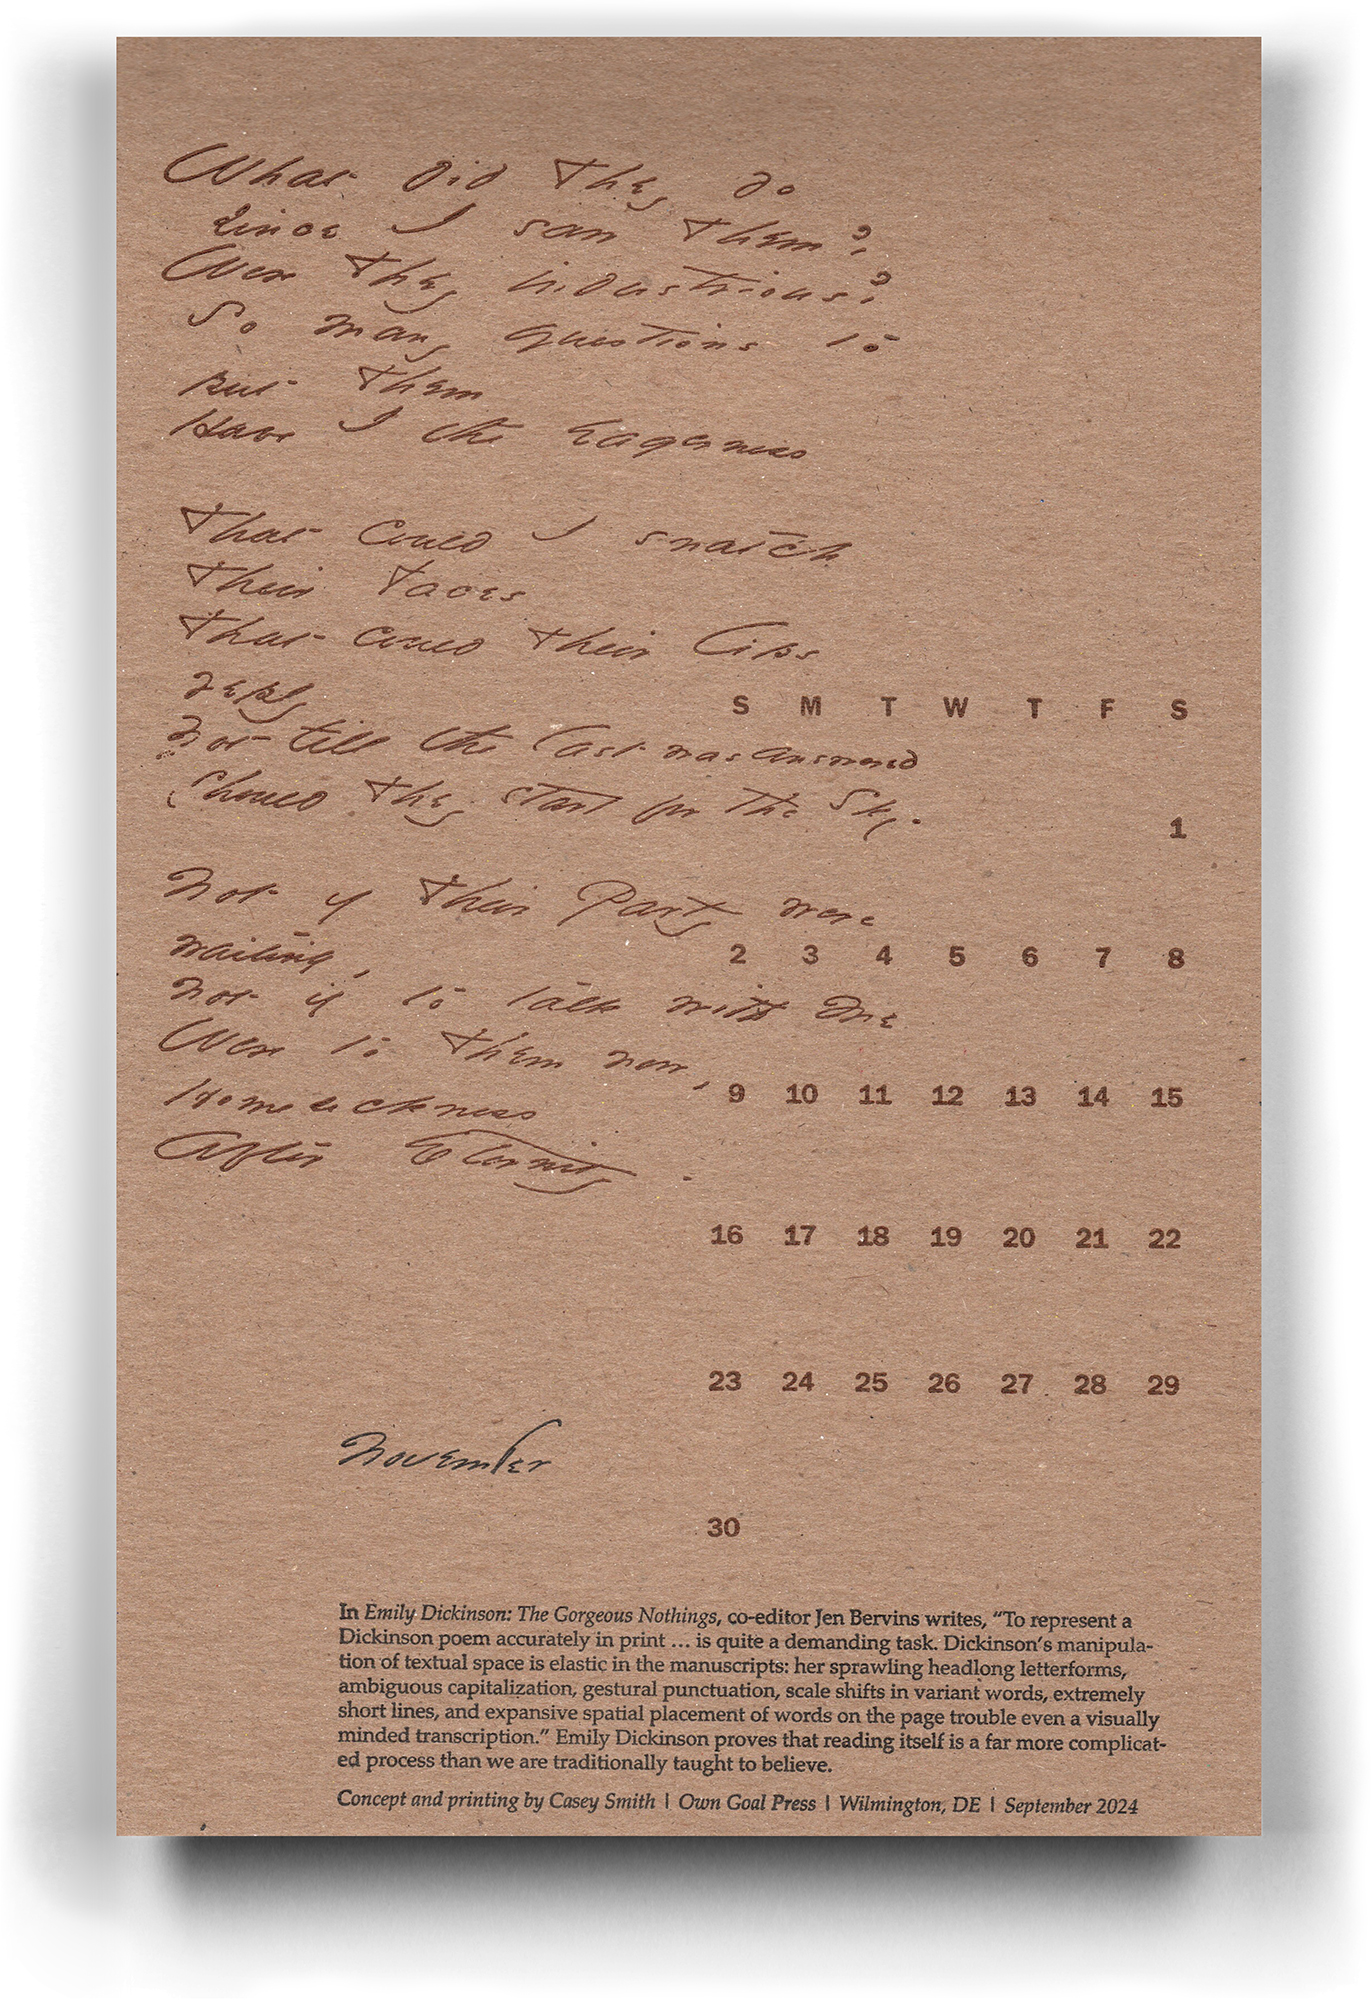 What did they do
since I saw them?
Were they industrious?
So many questions to
put them
Have I the Eagerness
That could I snatch
their faces
That could their lips
reply
Not till the last was answered
Should they start for the Sky.
Not if their Party were
waiting,
Not if to talk with me
Were to them now,
Homesickness
After Eternity.
S M T W T F S
1
2 3 4 5 6 7 8
9 10 11 12 13 14 15
16 17 18 19 20 21 22
23 24 25 26 27 28 29
November
30
In Emily Dickinson: The Gorgeous Nothings, co-editor Jen Bervins writes, “To represent a
Dickinson poem accurately in print ... is quite a demanding task. Dickinson’s manipula-
tion of textual space is elastic in the manuscripts: her sprawling headlong letterforms,
ambiguous capitalization, gestural punctuation, scale shifts in variant words, extremely
short lines, and expansive spatial placement of words on the page trouble even a visually
minded transcription.” Emily Dickinson proves that reading itself is a far more complicat-
ed process than we are traditionally taught to believe.
Concept and printing by Casey Smith | Own Goal Press | Wilmington, DE | September 2024